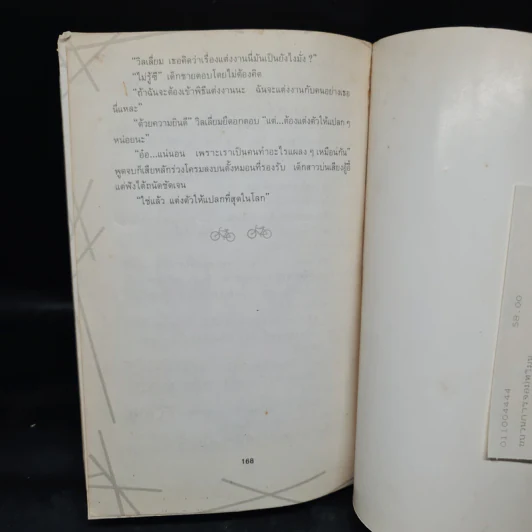 "วิลเลี่ยม เธอคิดว่าเรื่องแต่งงานนี่มันเป็นยังไงมั่ง ?"
"ไม่รู้ซี" เด็กชายตอบโดยไม่ต้องคิด
"ถ้าฉันจะต้องเข้าพิธีแต่งงานนะ ฉันจะแต่งงานกับคนอย่างเธอ
นี่แหละ"
"ด้วยความยินดี" วิลเลี่ยมยืดอกตอบ "แต่...ต้องแต่งตัวให้แปลก ๆ
หน่อยนะ"
"อ้อ...แน่นอน เพราะเราเป็นคนทำอะไรแผลง ๆ เหมือนกัน"
พูดจบก็เสียหลักร่วงโครมลงบนตั้งหมอนที่รองรับ เด็กสาวบ่นเสียงอู้อี้
แต่ฟังได้ถนัดชัดเจน
"ใช่แล้ว แต่งตัวให้แปลกที่สุดในโลก"
168
011004444
58.00